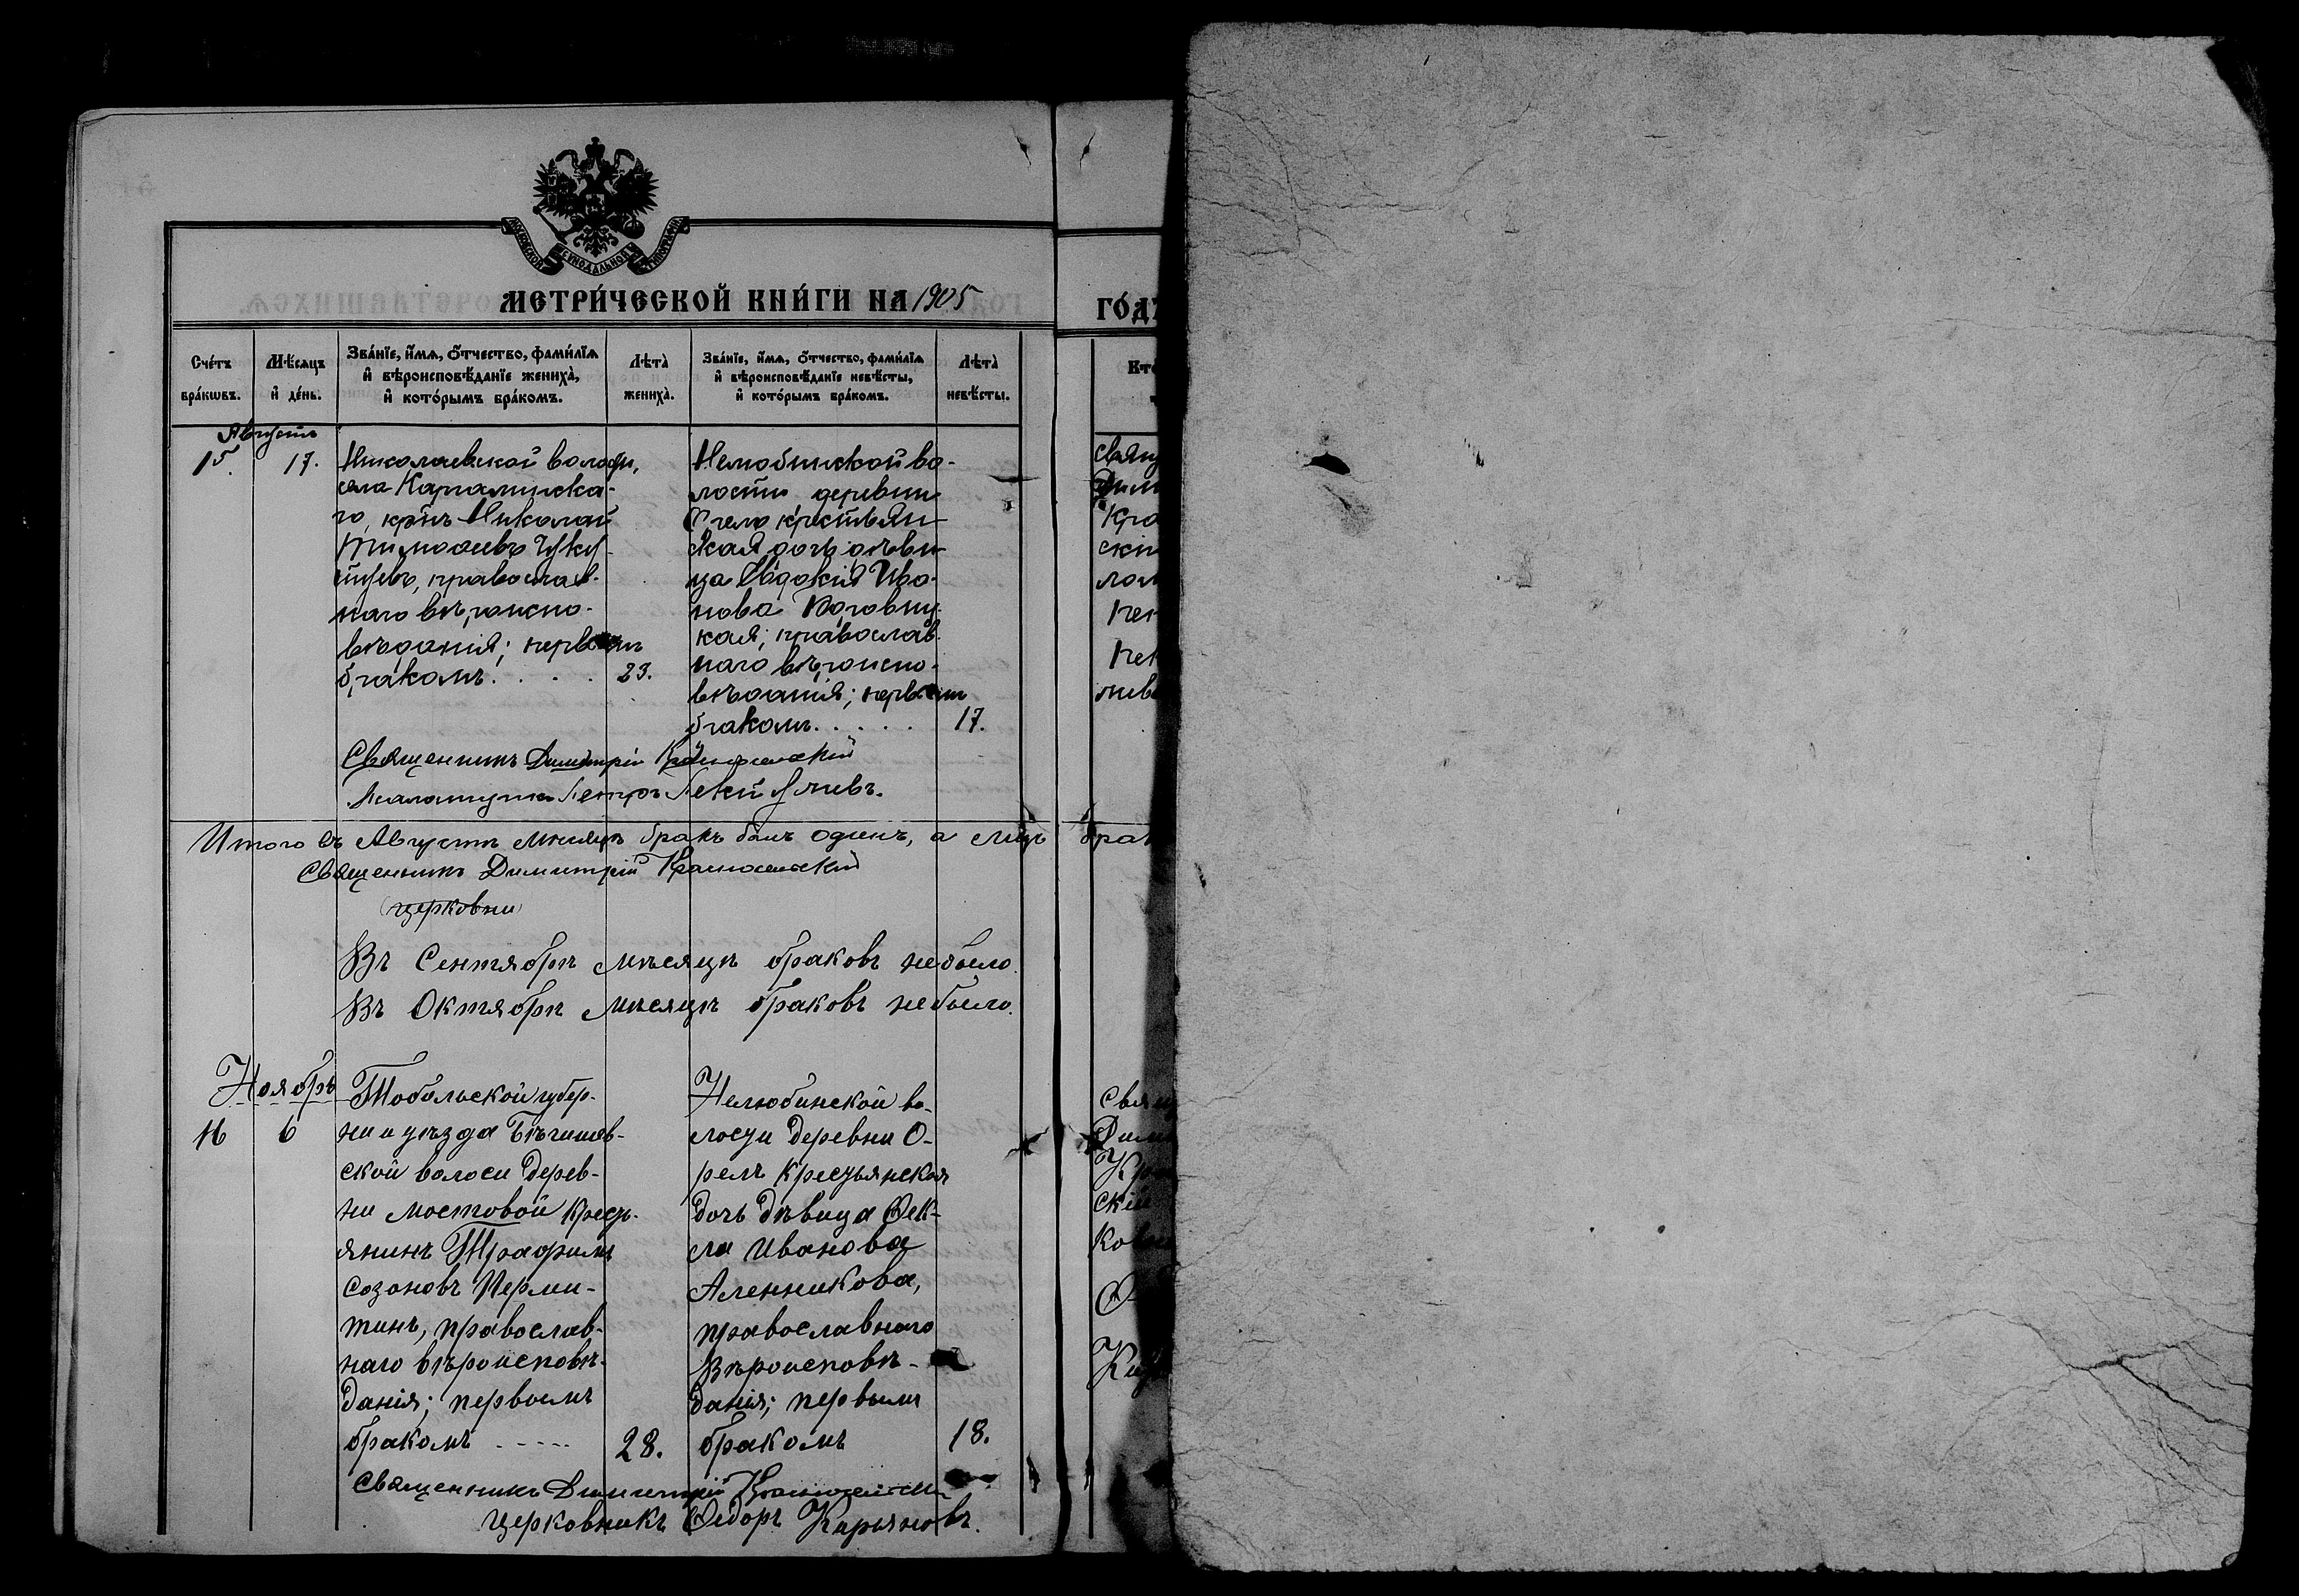 МОСКОВСКОЙ СѴНОДАЛЬНОЙ ТИПОГРАФІИ
МЕТРИ́ЧЕСКОЙ КНИ́ГИ НА 1905
ГО́ДЪ
Сче́тъ бра́кѡвъ.
Мѣ́сяцъ и҆ де́нь.
Зва́нїе, и҆́мѧ, ѻ҆́тчество, фами́лїѧ и҆ вѣроисповѣ́данїе жениха̀, и҆ кото́рымъ бра́комъ.
Лѣта̀ жениха̀.
Зва́нїе, и҆́мѧ, ѻ҆́тчество, фами́лїѧ и҆ вѣроисповѣ́данїе невѣ́сты, и҆ кото́рымъ бра́комъ.
Лѣта̀ невѣ́сты.
Августъ
15. 17.
Николаевской волости,
села Каргалинска-
го, кр̃нъ Николай
Тимофеевъ
православ-
наго вѣроиспо-
вѣданія; первымъ
бракомъ . . . . 23.
Нелюбинской во-
лости деревни
крестьян-
ская дочь дѣви-
ца Евдокія Ива-
нова
кая; православ-
наго вѣроиспо-
вѣданія; первымъ
бракомъ . . . . . 17.
Священникъ Димитрій Красносельскій
Псаломщикъ Петръ
Итого въ Августѣ мѣсяцѣ бракъ былъ одинъ, а лицъ
брак
Священникъ Димитрій Красносельскій
церковни
Въ Сентябрѣ мѣсяцѣ браковъ небыло.
Въ Октябрѣ мѣсяцѣ браковъ небыло.
Ноябрь
16 6
Тобольской губер-
ни и уѣзда
ской волоси дерев-
ни Мостовой кресть-
янинъ Трафимъ
Созоновъ Перми-
тинъ, православ-
наго вѣроисповѣ-
данія; первымъ
бракомъ ----- 28.
Нелюбинской во-
лости деревни О-
релъ кресьянская
дочь дѣвица Ѳек-
ла Иванова
Аленникова,
православнаго
вѣроисповѣ-
данія; первымъ
бракомъ 18.
Священникъ Димитрій Красносельскій
церковникъ Ѳедоръ Кирьяновъ.